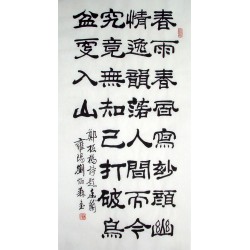 春雨春風寫妙顏幽
情逸韻落人間而今
究竟無知己打破烏
盆更入山
鄭板橋詩題盆蘭
雍陽劉炳森書